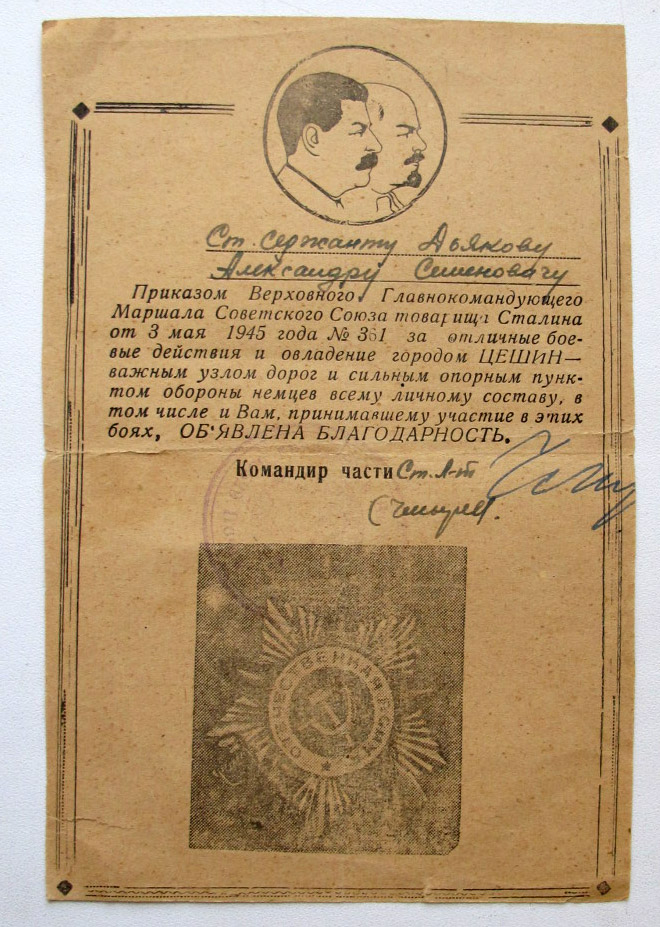 Ст. сержанту Дьякову
Александру Семеновичу
Приказом Верховного Главнокомандующего
Маршала Советского Союза товарища Сталина
от 3 мая 1945 года № 361 за отличные бое-
вые действия и овладение городом ЦЕШИН—
важным узлом дорог и сильным опорным пунк-
том обороны немцев всему личному составу, в
том числе и Вам, принимавшему участие в этих
боях, ОБ'ЯВЛЕНА БЛАГОДАРНОСТЬ.
Командир части Ст. Л-т
ОТЕЧЕСТВЕННАЯ ВОЙНА